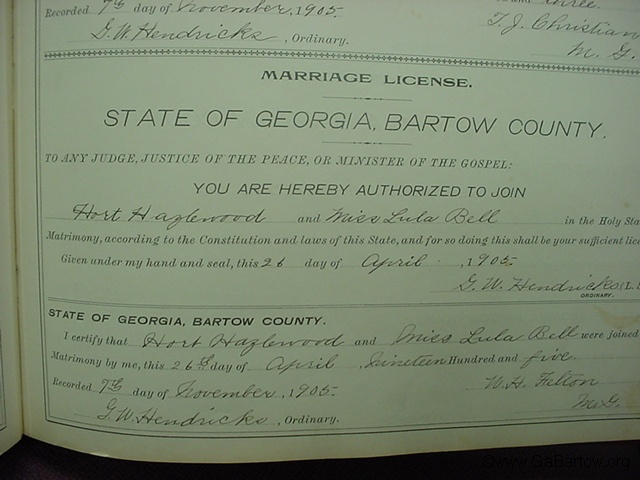 and three.
Recorded 7th day of November, 1905.
T. J. Christian
G. W. Hendricks, Ordinary.
M. G.
MARRIAGE LICENSE.
STATE OF GEORGIA, BARTOW COUNTY.
TO ANY JUDGE, JUSTICE OF THE PEACE, OR MINISTER OF THE GOSPEL:
YOU ARE HEREBY AUTHORIZED TO JOIN
Hort Hazlewood and Miss Lula Bell in the Holy Sta
Matrimony, according to the Constitution and laws of this State, and for so doing this shall be your sufficient lice
Given under my hand and seal, this 26 day of April, 1905.
G. W. Hendricks (L. S
ORDINARY.
STATE OF GEORGIA, BARTOW COUNTY.
I certify that Hort Hazlewood and Miss Lula Bell were joined
Matrimony by me, this 26th day of April Nineteen Hundred and five.
Recorded 7th day of November, 1905.
W. H. Felton
G. W. Hendricks, Ordinary.
M. G.
©www.GaBartow.org